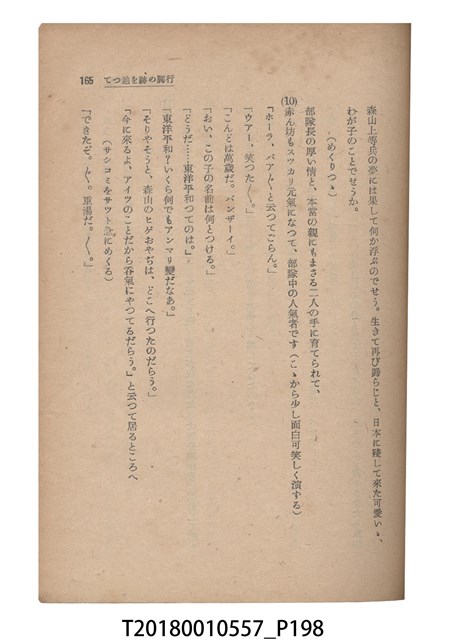 行脚の跡を追つて 165
森山上等兵の夢には果して何が浮ぶのでせう。生きて再び歸らじと、日本に殘して來た可愛いゝ、
わが子のことでせうか。
(めくりつゝ)
部隊長の厚い情と、本當の親にもまさる二人の手に育てられて、
(10)赤ん坊もスツカリ元氣になつて、部隊中の人氣者です(こゝから少し面白可笑しく演ずる)
「ホーラ、バア〳〵と云つてごらん。」
「ウアー、笑つた〳〵。」
「こんどは萬歲だ。バンザーイ。」
「おい、この子の名前は何とつける。」
「どうだ……東洋平和つてのは。」
「東洋平和?いくら何でもアンマリ變だなあ。」
「そりやそうと、森山のヒゲおやぢは、どこへ行つたのだらう。」
「今に來るよ、アイツのことだから吞氣にやつてるだらう。」と云つて居るところへ
(サシコミをサツト急にめくる)
「できたぞ。〳〵。重湯だ。〳〵。」
T20180010557_P198